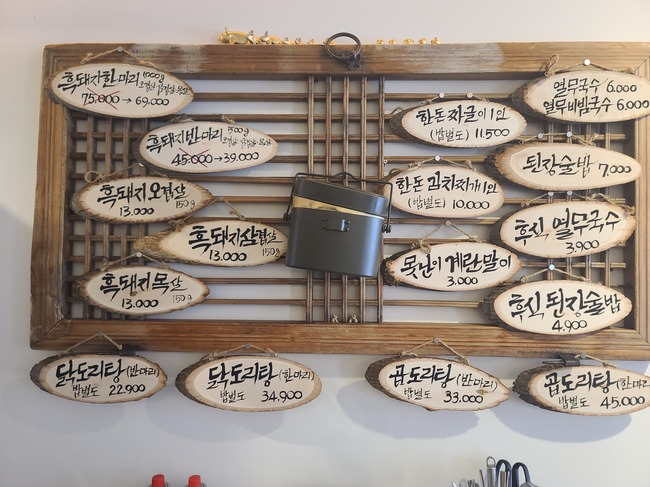 흑돼지한마리 1000g
오겹살 삼겹살 목살
75.000 → 69.000
흑돼지반마리 500g
오겹살 삼겹살 목살
45.000 → 39.000
흑돼지오겹살
13.000 150g
흑돼지삼겹살
13.000 150g
흑돼지목살
13.000 150g
한돈짜글이1인
(밥별도) 11.500
한돈김치찌개1인
(밥별도) 10.000
못난이계란말이
3.000
열무국수 6.000
열무비빔국수 6.000
된장술밥 7.000
후식 열무국수
3.900
후식 된장술밥
4.900
닭도리탕(반마리)
밥별도 22.900
닭도리탕(한마리)
밥별도 34.900
곱도리탕(반마리)
밥별도 33.000
곱도리탕(한마리)
밥별도 45.000